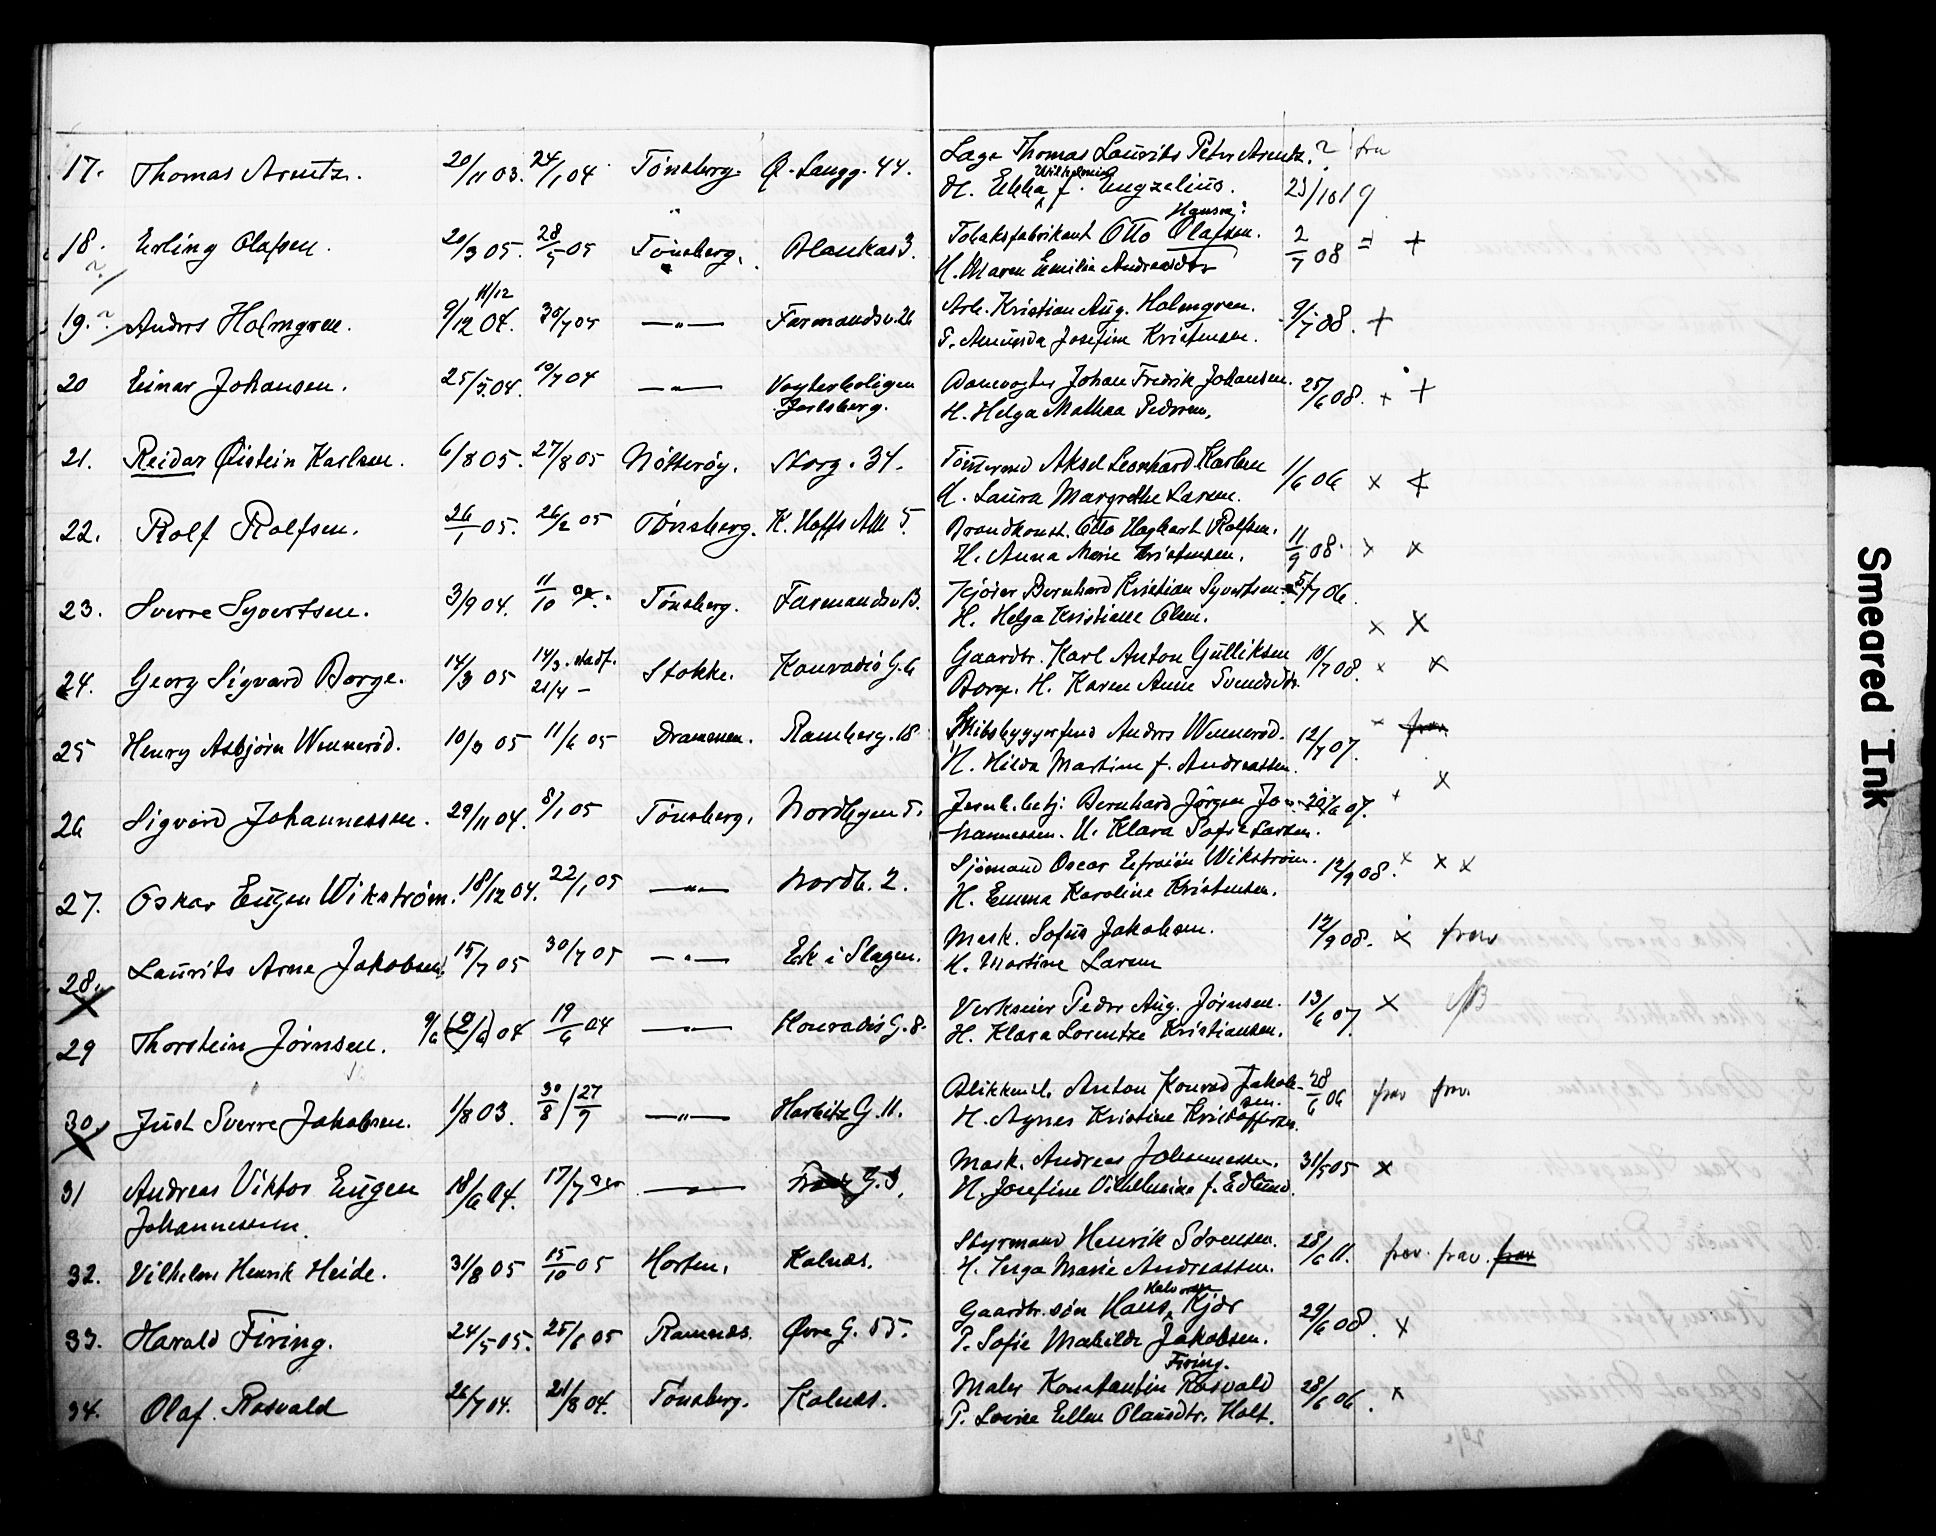 17. Thomas Arentz. 20/11 03. 24/1 04 Tönsberg. Ø. Langg. 44. Læge Thomas Laurits Peter Arentz. ? frav
H. Ebba Wilhelmine f. Engzelius. 23/10 19
18. Erling Olafsen. 20/3 05. 28/5 05 Tönsberg. Blankas 3. Tobaksfabrikant Otto Hansen Olafsen. 2/7 08 +
? H. Maren Emilie Andreasdtr
19. ? Anders Holmgren. 9/12 04. 11/12 30/7 05 —„— Farmandsv. 26 Arb. Kristian Aug. Holmgren. 9/7 08. +
P. Amunda Josefine Kristensen.
20 Einar Johansen. 25/5 04. 10/7 04 —„— Vogterboligen Banevogter Johan Fredrik Johansen. 25/6 08. + +
Jarlsberg. H. Helga Mathea Pedersen.
21. Reidar Øistein Karlsen. 6/8 05. 27/8 05 Nötterøy. Storg. 34. Tömmermd Aksel Leonhard Karlsen 1/6 06 x +
H. Laura Margrethe Larsen.
22. Rolf Rolfsen. 26/1 05. 26/2 05 Tönsberg. K. Hoffs Alle 5. Brandkonst. Otto Hagbart Rolfsen. 11/9 08. x x
H. Anna Marie Kristensen.
23. Sverre Syvertsen. 3/9 04. 11/10 04. Tönsberg. Farmandsv 13. Kjører Bernhard Kristian Syvertsen 5/7 06.
H. Helga Kristiane Olsen. x x
24. Georg Sigvard Borge. 14/3 05 14/3. stadf. Stokke. Konradis G. 6 Gaardbr. Karl Anton Gulliksen 10/7 08. x x
21/4 – Borge. H. Karen Anne Svendsdtr.
25 Henry Asbjørn Wennerød. 10/3 05 11/6 05 Drammen. Ramberg. 18 Skibsbyggerfmd Anders Wennerød. 12/7 07. x frav
H. Hilda Martine f. Andreassen.
26 Sigvard Johannessen. 29/11 04. 8/1 05 Tönsberg. Nordbyen 5. Jernb.betj. Bernhard Jörgen Jo- 24/6 07. + x
hannessen. H. Klara Sofie Larsen.
27. Oskar Eugen Wikström. 18/12 04. 22/1 05 —„— Nordb. 2. Sjömand Oscar Efraim Wikström. 12/9 08. x x x
H. Emma Karoline Kristensen.
28. Laurits Arne Jakobsen. 15/7 05 30/7 05 —„— Ek i Slagen. Mask. Sofus Jakobsen. 12/9 08. x frav
X H. Martine Larsen
29 Thorstein Jörnsen. 9/6 (2/6) 04 19/6 04 —„— Konradis G. 8. Verkseier Peder Aug. Jörnsen. 13/6 07. x
H. Klara Lorentze Kristiansen.
30. Just Sverre Jakobsen. 1/8 03. 30/8 | 27/9 —„— Harbitz G. 11. Blikkensl. Anton Konrad Jakob- 28/6 06 frav frav.
X sen. H. Agnes Kristine Kristoffersen.
31 Andreas Viktor Eugen 18/6 04. 17/7 04 ——— G. 3. Mask. Andreas Johannessen. 31/5 05 x
Johannessen. H. Josefine Vilhelmine f. Edlund.
32. Vilhelm Henrik Heide. 31/8 05 15/10 05 Horten. Kalnes. Styrmand Henrik Sörensen. 28/6 11. frav. frav. frav
H. Inga Marie Andreassen.
33. Harald Firing. 24/5 05. 25/6 05 Ramnes. Øvre G. 55. Gaardbr. søn Hans Halvorsen Kjær 29/6 08. x
P. Sofie Mathilde Jakobsen.
Firing.
34. Olaf Rosvald 26/7 04. 21/8 04. Tönsberg. Kalnes. Maler Konstantin Rosvald 28/6 06. x
P. Lovise Ellen Olausdtr. Holt.
Smeared Ink